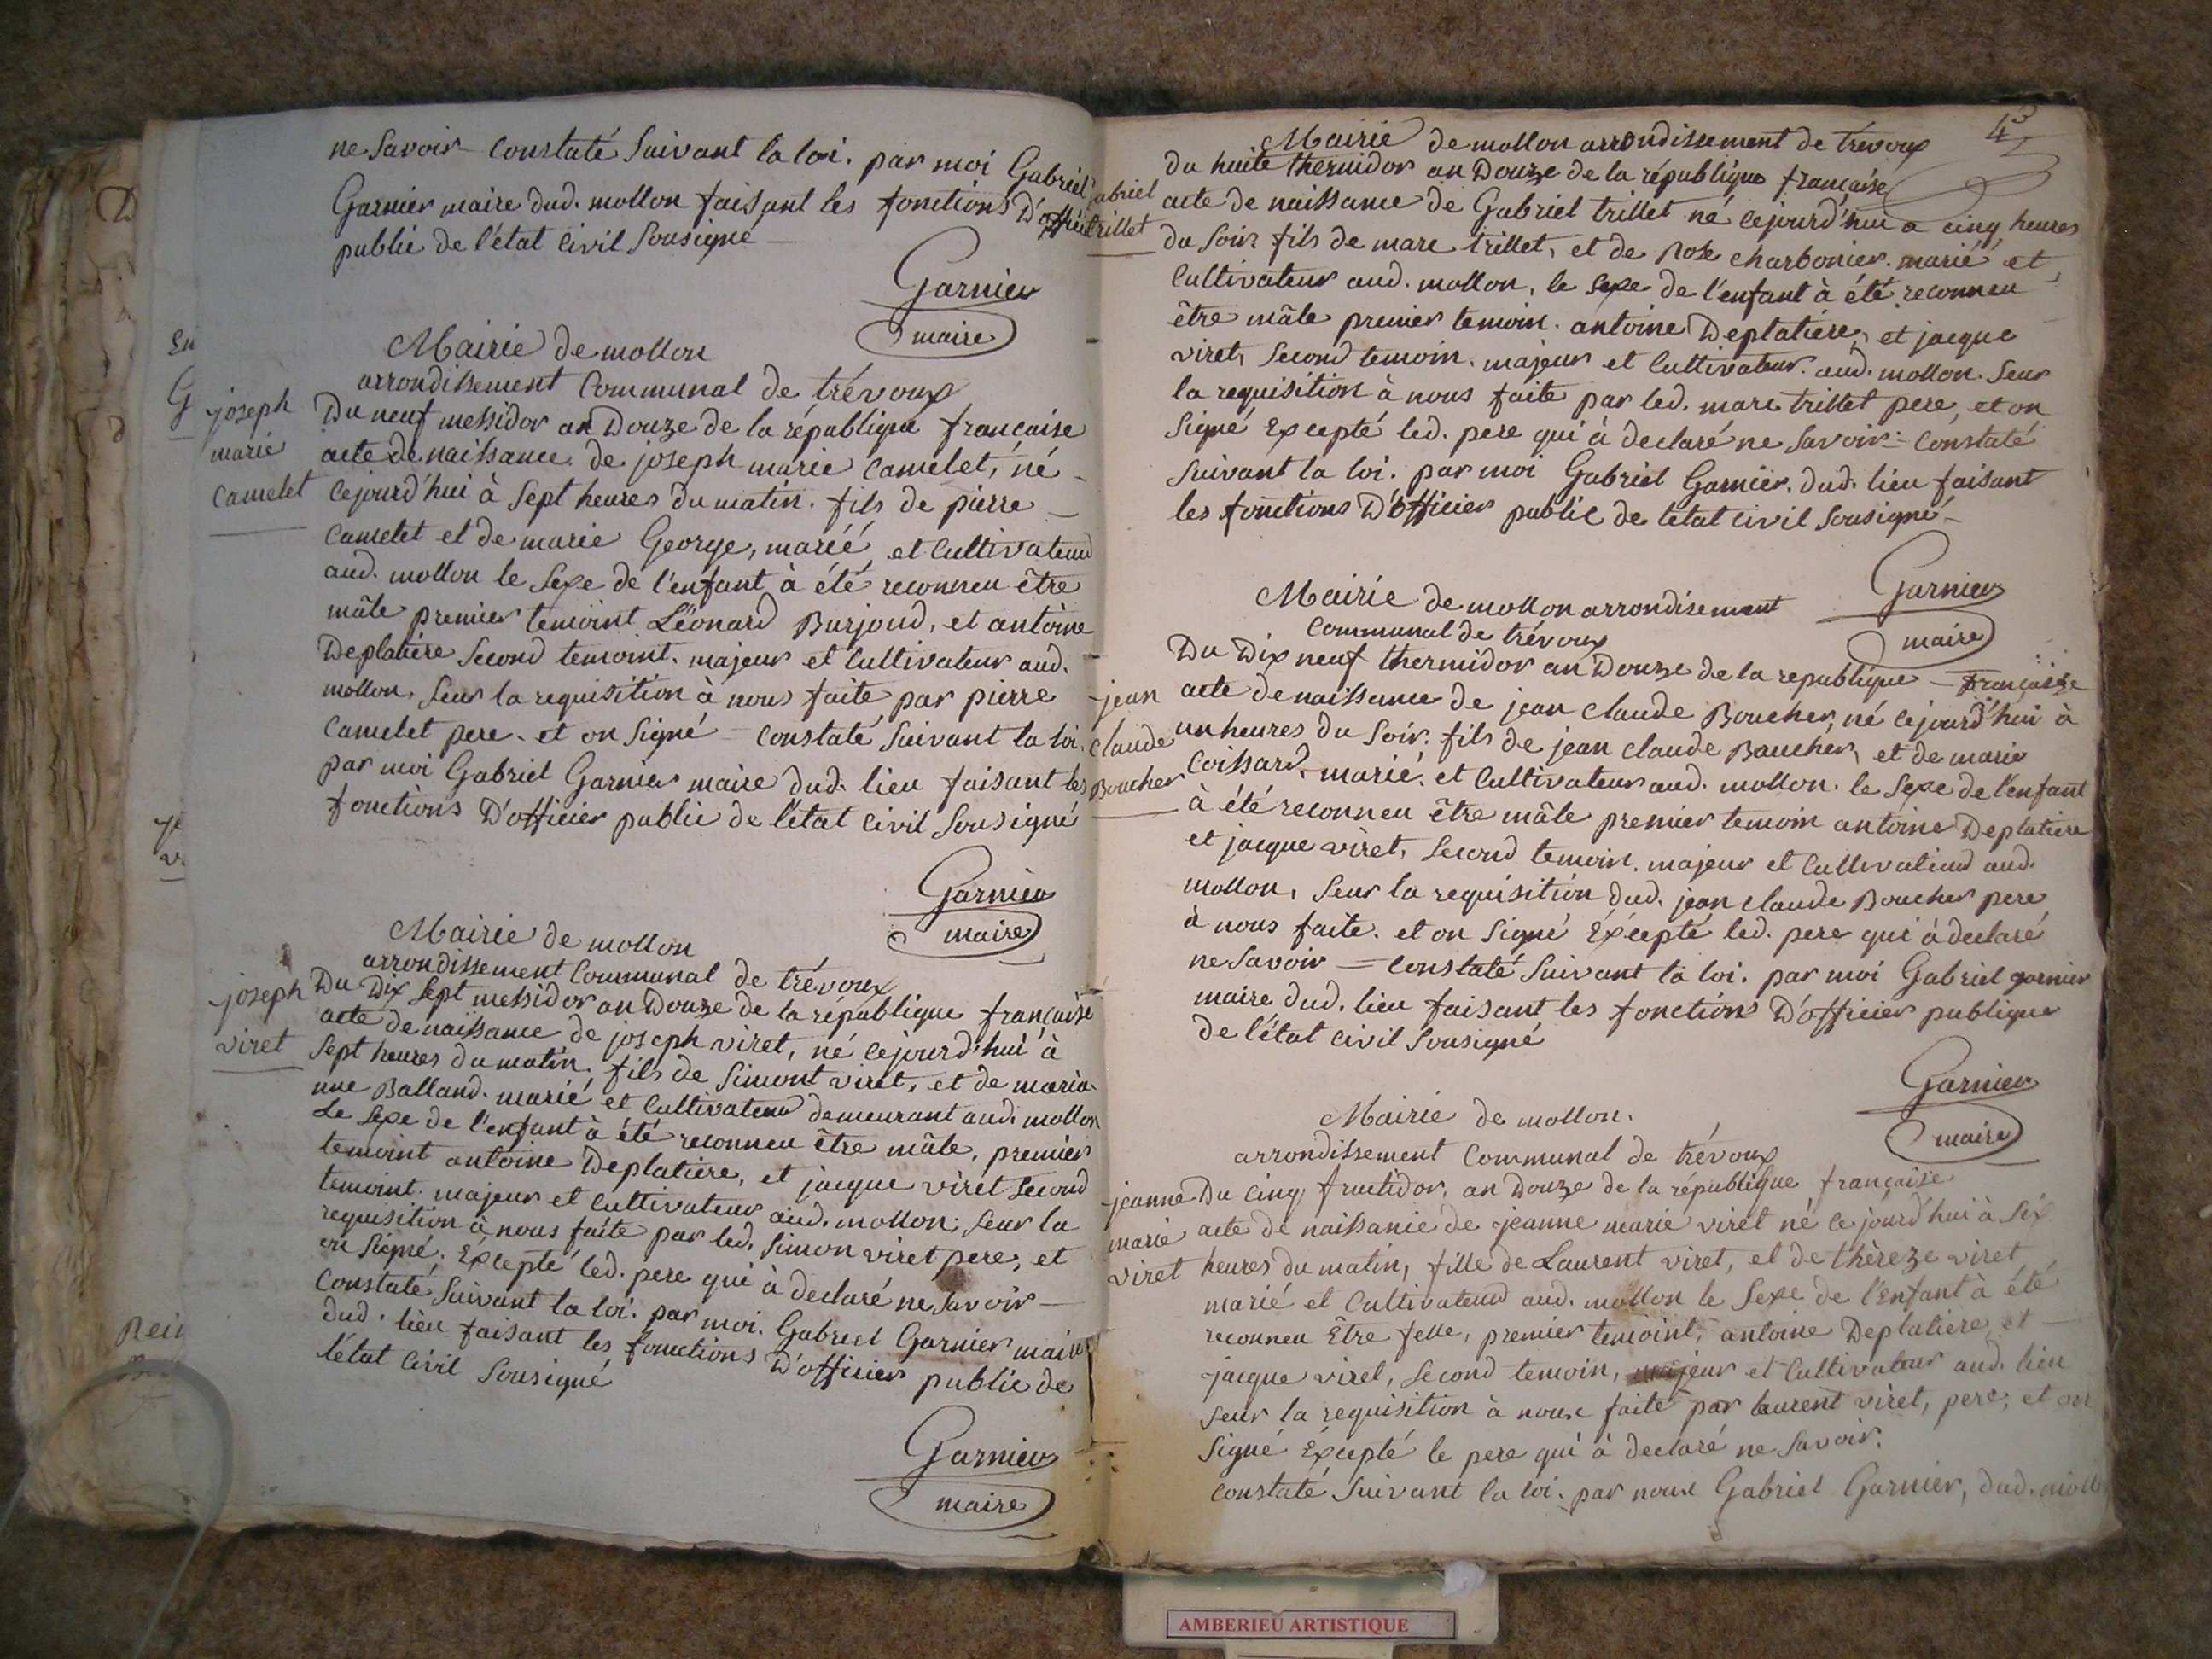 ne Savoir – Constaté Suivant la loi. par moi Gabriel
Garnier maire dud. mollon faisant les fonctions D'officié
public de l'état Civil Sousigné –
Garnier
maire
Mairie de mollon
arrondissement Communal de trévoux
joseph
marie
Camelet
Du neuf messidor an Douze de la république francaise
acte de naissance de joseph marie Camelet, né –
Cejourd'hui à Sept heures du matin. fils de pierre –
Camelet et de marie George, mariéé, et Cultivateur
aud. mollon le Sexe de l'enfant à été reconneu être
mâle premier temoint Léonard Burjoud, et antoine
Deplatiére Second temoint. majeur et Cultivateur aud.
mollon, Seur la requisition à nous faite par pierre
Camelet pere. et on Signé – Constaté Suivant la loi.
par moi Gabriel Garnier maire dud. lieu faisant les
fonctions D'officier public de l'état Civil Sousigné
Garnier
maire
Mairie de mollon
arrondissement Communal de trévoux
joseph
viret
Du Dix Sept messidor an Douze de la république française
acte de naissance de joseph viret, né Cejourd'hui à
Sept heures du matin. fils de Simont viret, et de maria-
nne Balland. marié et Cultivateur demeurant aud. mollon
Le Sexe de l'enfant à été reconneu être mâle, premier
temoint antoine Deplatiere, et jacque viret Second
temoint. majeur et Cultivateur aud. mollon, Seur la
requisition à nous faite par led. Simon viret pere, et
on Signé, Éxcepté led. pere qui à declaré ne Savoir –
Constaté Suivant la loi. par moi. Gabriel Garnier maire
dud. lieu faisant les fonctions D'officier public de
l'état Civil Sousigné
Garnier
maire
Mairie de mollon arrondissement de trévoux
abriel
trillet
du huite thermidor an Douze de la république française
acte de naissance de Gabriel trillet né Cejourd'hui a cinq heures
du Soir fils de marc trillet, et de Rose Charbonier. marié et
Cultivateur aud. mollon, le Sexe de l'enfant à été reconneu
être mâle premier temoin. antoine Deplatiére, et jacque
viret, Second temoin. majeur et Cultivateur. aud. mollon. Seur
la requisition à nous faite par led. marc trillet pere, et on
Signé Excepté led. pere qui à declaré ne Savoir – Constaté
Suivant la loi. par moi Gabriel Garnier. dud. lieu faisant
les fonctions D'officier public de letat Civil Sousigné –
Garnier
maire
Mairie de mollon arrondisement
Communal de trévoux
jean
Claude
Boucher
Du Dix neuf thermidor an Douze de la republique – française
acte de naissance de jean Claude Boucher, né Cejourd'hui à
un heures du Soir. fils de jean Claude Baucher, et de marie
Coissard, marié. et Cultivateur aud. mollon. le Sexe de l'enfant
à été reconneu être mâle premier temoin antoine Deplatiere
et jacque viret, Second temoin. majeur et Cultivateur aud.
mollon, Seur la requisition dud. jean Claude Boucher pere
à nous faite. et on Signé Éxcepté led. pere qui à declaré
ne Savoir – Constaté Suivant la loi. par moi Gabriel garnier
maire dud. lieu faisant les fonctions D'officier publique
de l'état Civil Sousigné
Garnier
maire
Mairie de mollon.
arrondissement Communal de trévoux
jeanne
marie
viret
Du Cinq fructidor, an Douze de la république française
acte de naissance de jeanne marie viret né Cejourd'hui à Six
heures du matin, fille de Laurent viret, et de thèreze viret
marié et Cultivateur aud. mollon le Sexe de l'Enfant à été
reconneu Être felle, premier temoint, antoine Deplatiere et –
jacque viret, Second temoin, majeur et Cultivateur aud. lieu
Seur la requisition à noux faite par laurent viret, pere, et on
Signé Éxcepté le pere qui à declaré ne Savoir.
Constaté Suivant la loi. par noux Gabriel Garnier, dud. mollo
AMBERIEU ARTISTIQUE